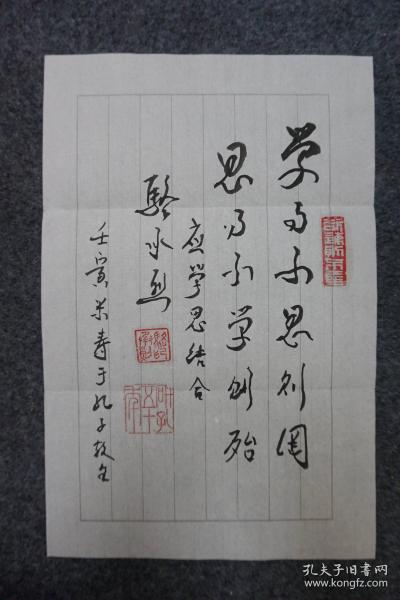 学而不思则罔
思而不学则殆
应学思结合
骆承烈
壬寅米寿于孔子故里
孔夫子旧书网
www.kongfz.com